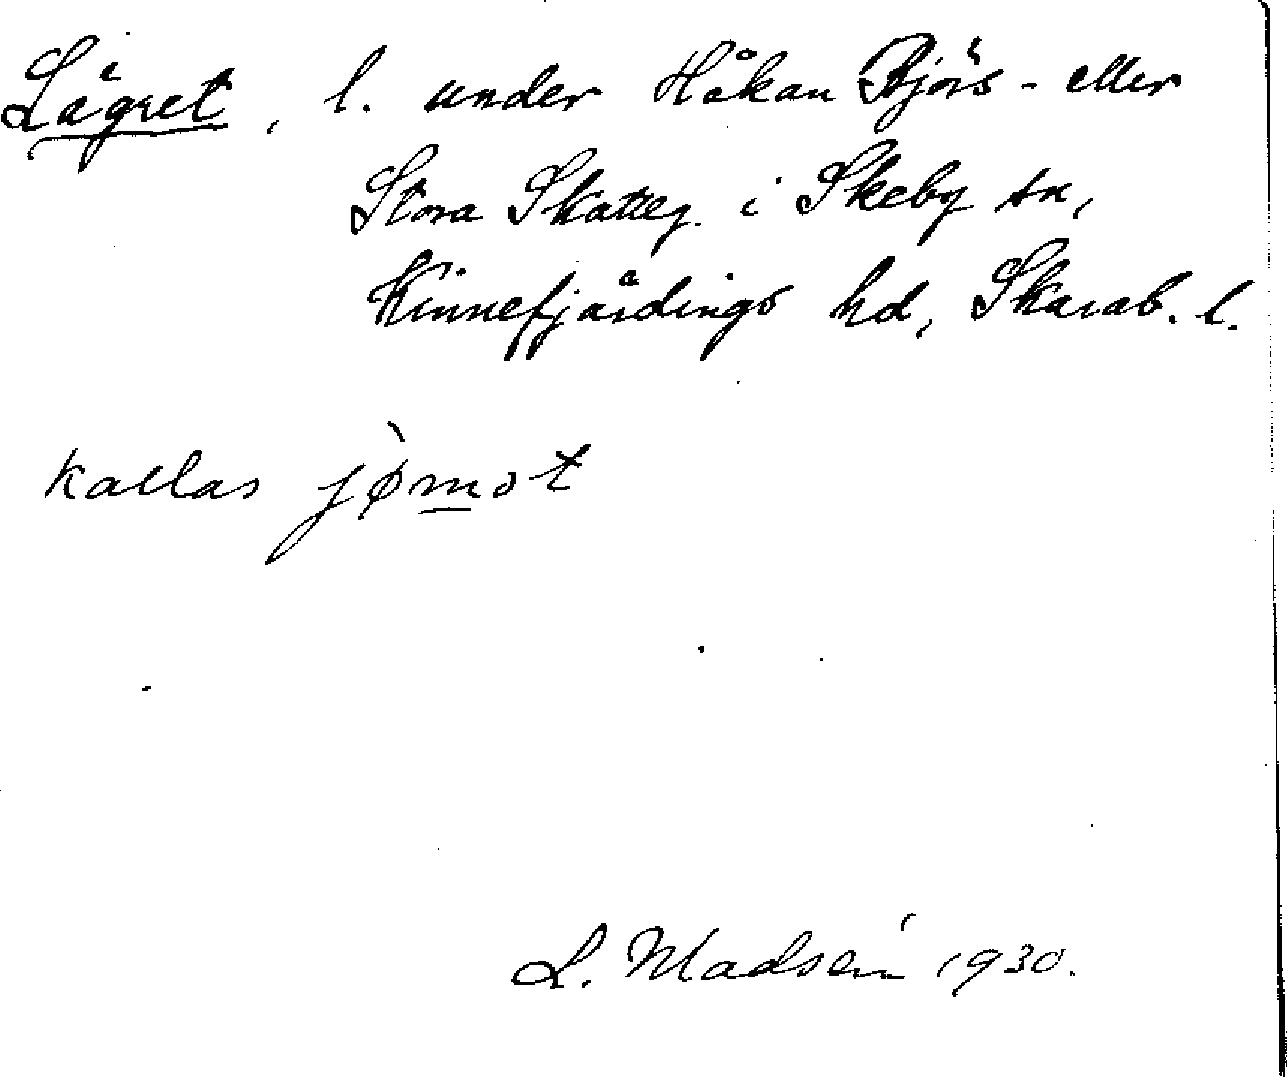 Lägret, l. under Håkan Björs- eller
Stora Skatteg. i Skeby sn,
Kinnefjärdings hd, Skarab. l.
kallas jø̀mot
L. Madsén 1930.